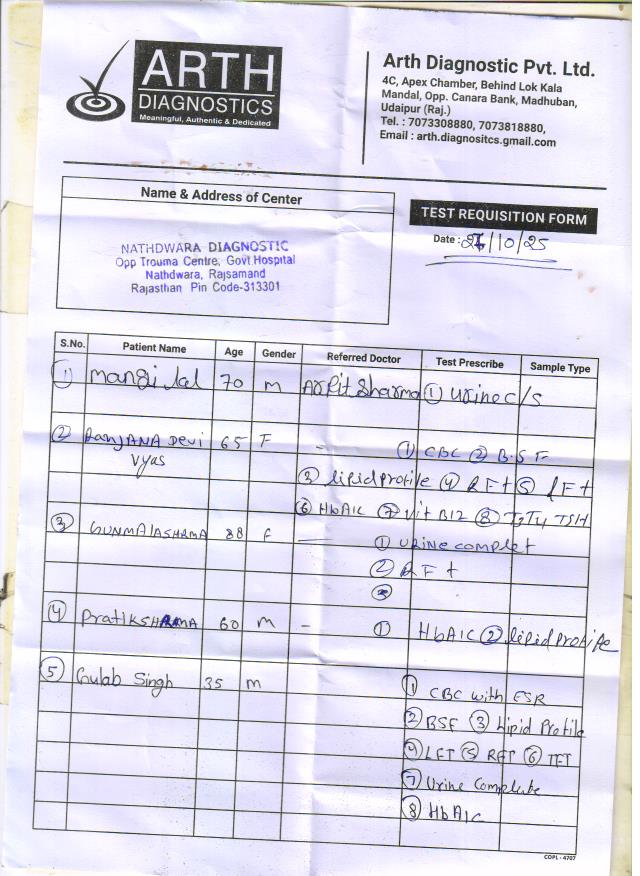 ARTH
DIAGNOSTICS
Meaningful, Authentic & Dedicated
Arth Diagnostic Pvt. Ltd.
4C, Apex Chamber, Behind Lok Kala
Mandal, Opp. Canara Bank, Madhuban,
Udaipur (Raj.)
Tel. : 7073308880, 7073818880,
Email : arth.diagnositcs.gmail.com
Name & Address of Center
NATHDWARA DIAGNOSTIC
Opp Trouma Centre, Govt Hospital
Nathdwara, Rajsamand
Rajasthan Pin Code-313301
TEST REQUISITION FORM
Date : /10/25
S.No. Patient Name Age Gender Referred Doctor Test Prescribe Sample Type
① Mangi lal 70 M Arpit Sharma ① Urine c/s
② RanJANA Devi 65 F - ① CBC ② B.S.F
Vyas
③ lipid profile ④ RFt ⑤ LFt
⑥ HbA1C ⑦ Vit B12 ⑧ T3T4 TSH
③ GUNMALASHRMA 88 F — ① URine complet
② RFt
③
④ PratikSHRMA 60 M - ① HbA1C ② lipid profile
⑤ Gulab Singh 35 M ① CBC with ESR
② BSF ③ Lipid Profile
④ LFT ⑤ RFT ⑥ TFT
⑦ Urine Complete
⑧ HbA1C
COPL - 4707